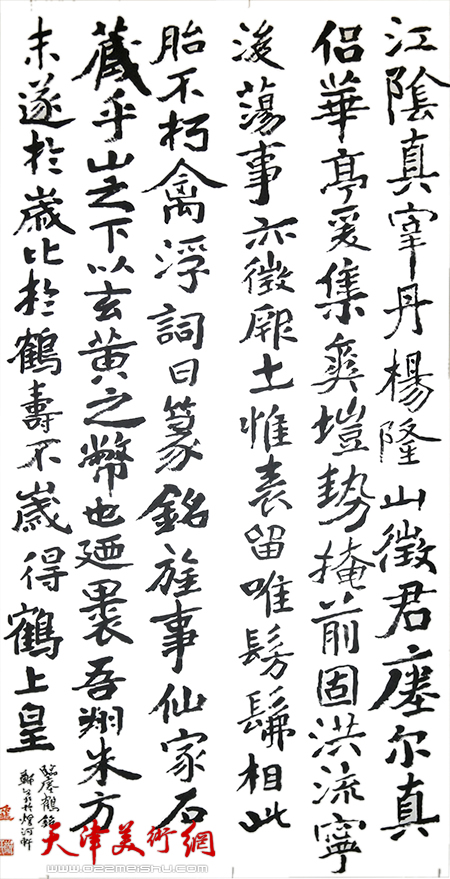 江陰真宰丹楊隆山徵君瘞尔真
侶華亭爰集爽塏勢掩前固洪流寧
後蕩事亦徵厥土惟表留唯髣髴相此
胎不朽禽浮詞曰篆銘旌事仙家石
藏乎山之下以玄黄之幣也廼裹吾翔朱方
未遂於歲比於鶴壽不歲得鶴上皇
臨瘞鶴銘
天津美術網
www.022meishu.com